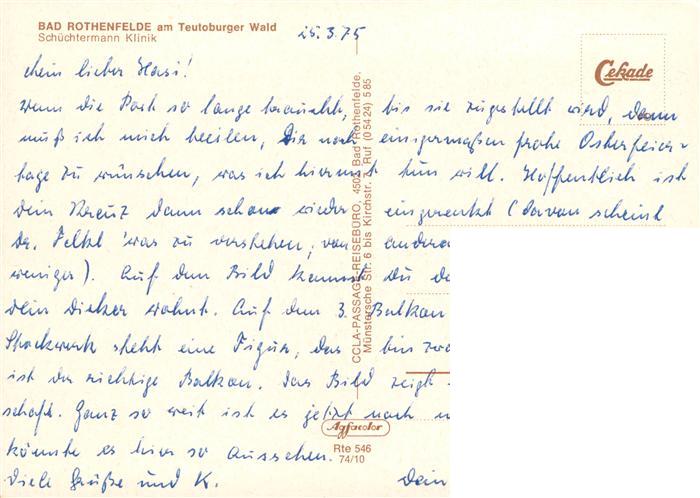 BAD ROTHENFELDE am Teutoburger Wald
Schüchtermann Klinik
25.3.75
Cekade
Mein lieber Hasi!
wenn die Post so lange braucht, bis sie zugestellt wird, dann
muß ich mich beeilen, Dir noch einigermaßen frohe Osterfeier-
tage zu wünschen, was ich hiermit tun will. Hoffentlich ist
Dein Kreuz dann schon wieder eingerenkt (davon scheint
Dr. 'was zu verstehen, von
weniger). Auf dem Bild kannst Du
Dein Dicker wohnt. Auf dem 3. Balkon
Stockwerk steht eine Figur, das bin
ist der richtige Balkon. Das Bild zeigt
schaft. Ganz so weit ist es jetzt noch
könnte es hier so aussehen.
Viele Grüße und K. Dein
CCLA-PASSAGE-REISEBÜRO, 4502 Bad Rothenfelde,
Münstersche Str. 6 bis Kirchstr. 7, Ruf (0 54 24) 5 85
Agfacolor
Rte 546
74/10